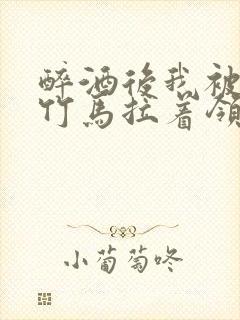 醉酒後我被
竹馬拉着領
小葡萄咚